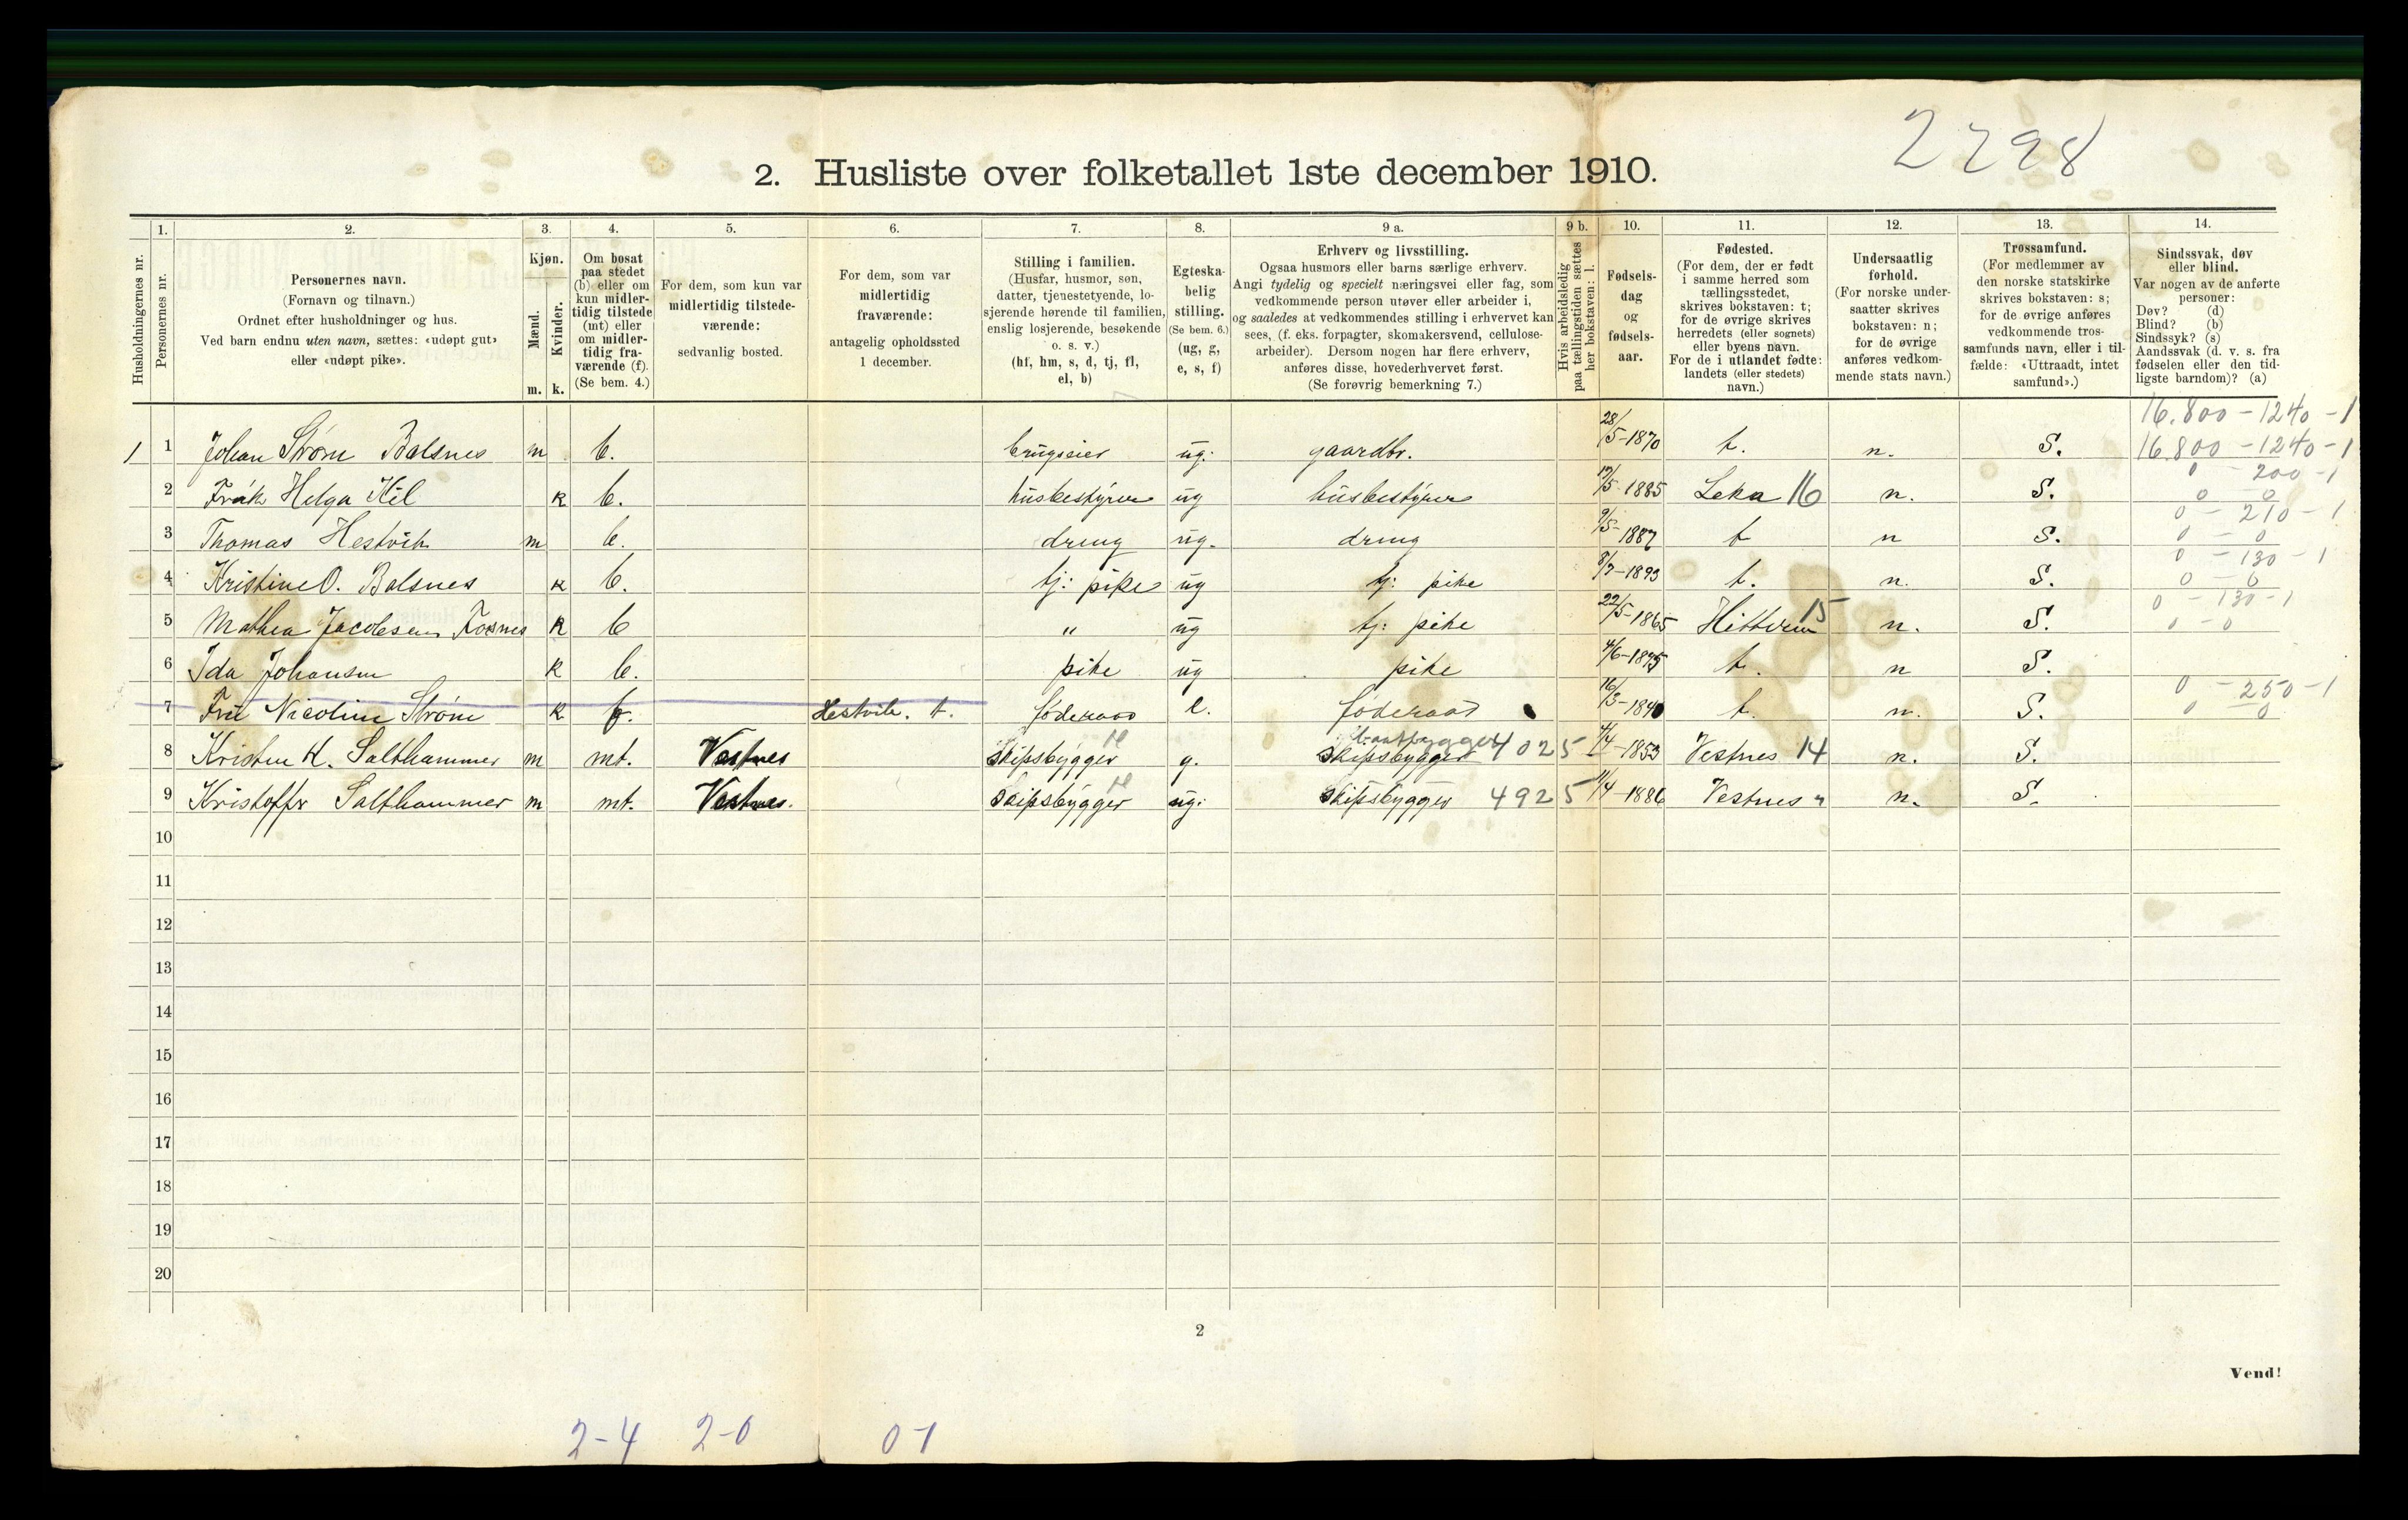 2298
2. Husliste over folketallet 1ste december 1910.
Husholdningernes nr.
1. Personernes nr.
2. Personernes navn. (Fornavn og tilnavn.) Ordnet efter husholdninger og hus. Ved barn endnu uten navn, sættes: «udøpt gut» eller «udøpt pike».
3. Kjøn. Mænd. m. Kvinder. k.
4. Om bosat paa stedet (b) eller om kun midlertidig tilstede (mt) eller om midlertidig fraværende (f). (Se bem. 4.)
5. For dem, som kun var midlertidig tilstedeværende: sedvanlig bosted.
6. For dem, som var midlertidig fraværende: antagelig opholdssted 1 december.
7. Stilling i familien. (Husfar, husmor, søn, datter, tjenestetyende, losjerende hørende til familien, enslig losjerende, besøkende o. s. v.) (hf, hm, s, d, tj, fl, el, b)
8. Egteskabelig stilling. (Se bem. 6.) (ug, g, e, s, f)
9 a. Erhverv og livsstilling. Ogsaa husmors eller barns særlige erhverv. Angi tydelig og specielt næringsvei eller fag, som vedkommende person utøver eller arbeider i, og saaledes at vedkommendes stilling i erhvervet kan sees, (f. eks. forpagter, skomakersvend, cellulosearbeider). Dersom nogen har flere erhverv, anføres disse, hovederhvervet først. (Se forøvrig bemerkning 7.)
9 b. Hvis arbeidsledig paa tællingstiden sættes her bokstaven: l.
10. Fødselsdag og fødselsaar.
11. Fødested. (For dem, der er født i samme herred som tællingsstedet, skrives bokstaven: t; for de øvrige skrives herredets (eller sognets) eller byens navn. For de i utlandet fødte: landets (eller stedets) navn.)
12. Undersaatlig forhold. (For norske undersaatter skrives bokstaven: n; for de øvrige anføres vedkommende stats navn.)
13. Trossamfund. (For medlemmer av den norske statskirke skrives bokstaven: s; for de øvrige anføres vedkommende trossamfunds navn, eller i tilfælde: «Uttraadt, intet samfund».)
14. Sindssvak, døv eller blind. Var nogen av de anførte personer: Døv? (d) Blind? (b) Sindssyk? (s) Aandssvak (d. v. s. fra fødselen eller den tidligste barndom)? (a)
16.800 - 1240 - 1
1 1 Johan Strøm Balsnes m b. brugseier ug. gaardbr. 28/5-1870 t. n. S. 16.800 - 1240 - 1
0 - 200 - 1
2 Helga Kil k b. husbestyrer ug husbestyrer 5-1885 Leka 16 n. S. 0 0
0 - 210 - 1
3 Thomas Hestvik m b. dreng ug. dreng 9/5-1887 t n S. 0 - 0
0 - 130 - 1
4 Kristine O. Balsnes k b. tj: pike ug tj: pike 8/7-1893 t. n. S. 0 - 0
0 - 130 - 1
5 Mathea Jacobsen Fosnes k b " ug tj: pike 22/5-1865 Hitteren 15 n. S. 0 - 0
6 Ida Johansen k b. pike ug pike t. n S.
0 - 250 - 1
7 Fru Nicoline Strøm k f. Hestvik. t. føderaad e. føderaad 16/3-1840 t. n. S. 0 0
baatbygger
8 Kristen K. Salthammer m mt. Vestnes skipsbygger g. skipsbygger 4025 4/4-1853 Vestnes 14 n. S.
9 Kristoffer Salthammer m mt. Vestnes. skipsbygger ug. skipsbygger 4925 11/4-1886 Vestnes " n. S.
10
11
12
13
14
15
16
17
18
19
20
2
Vend!
2-4 2-0 0-1